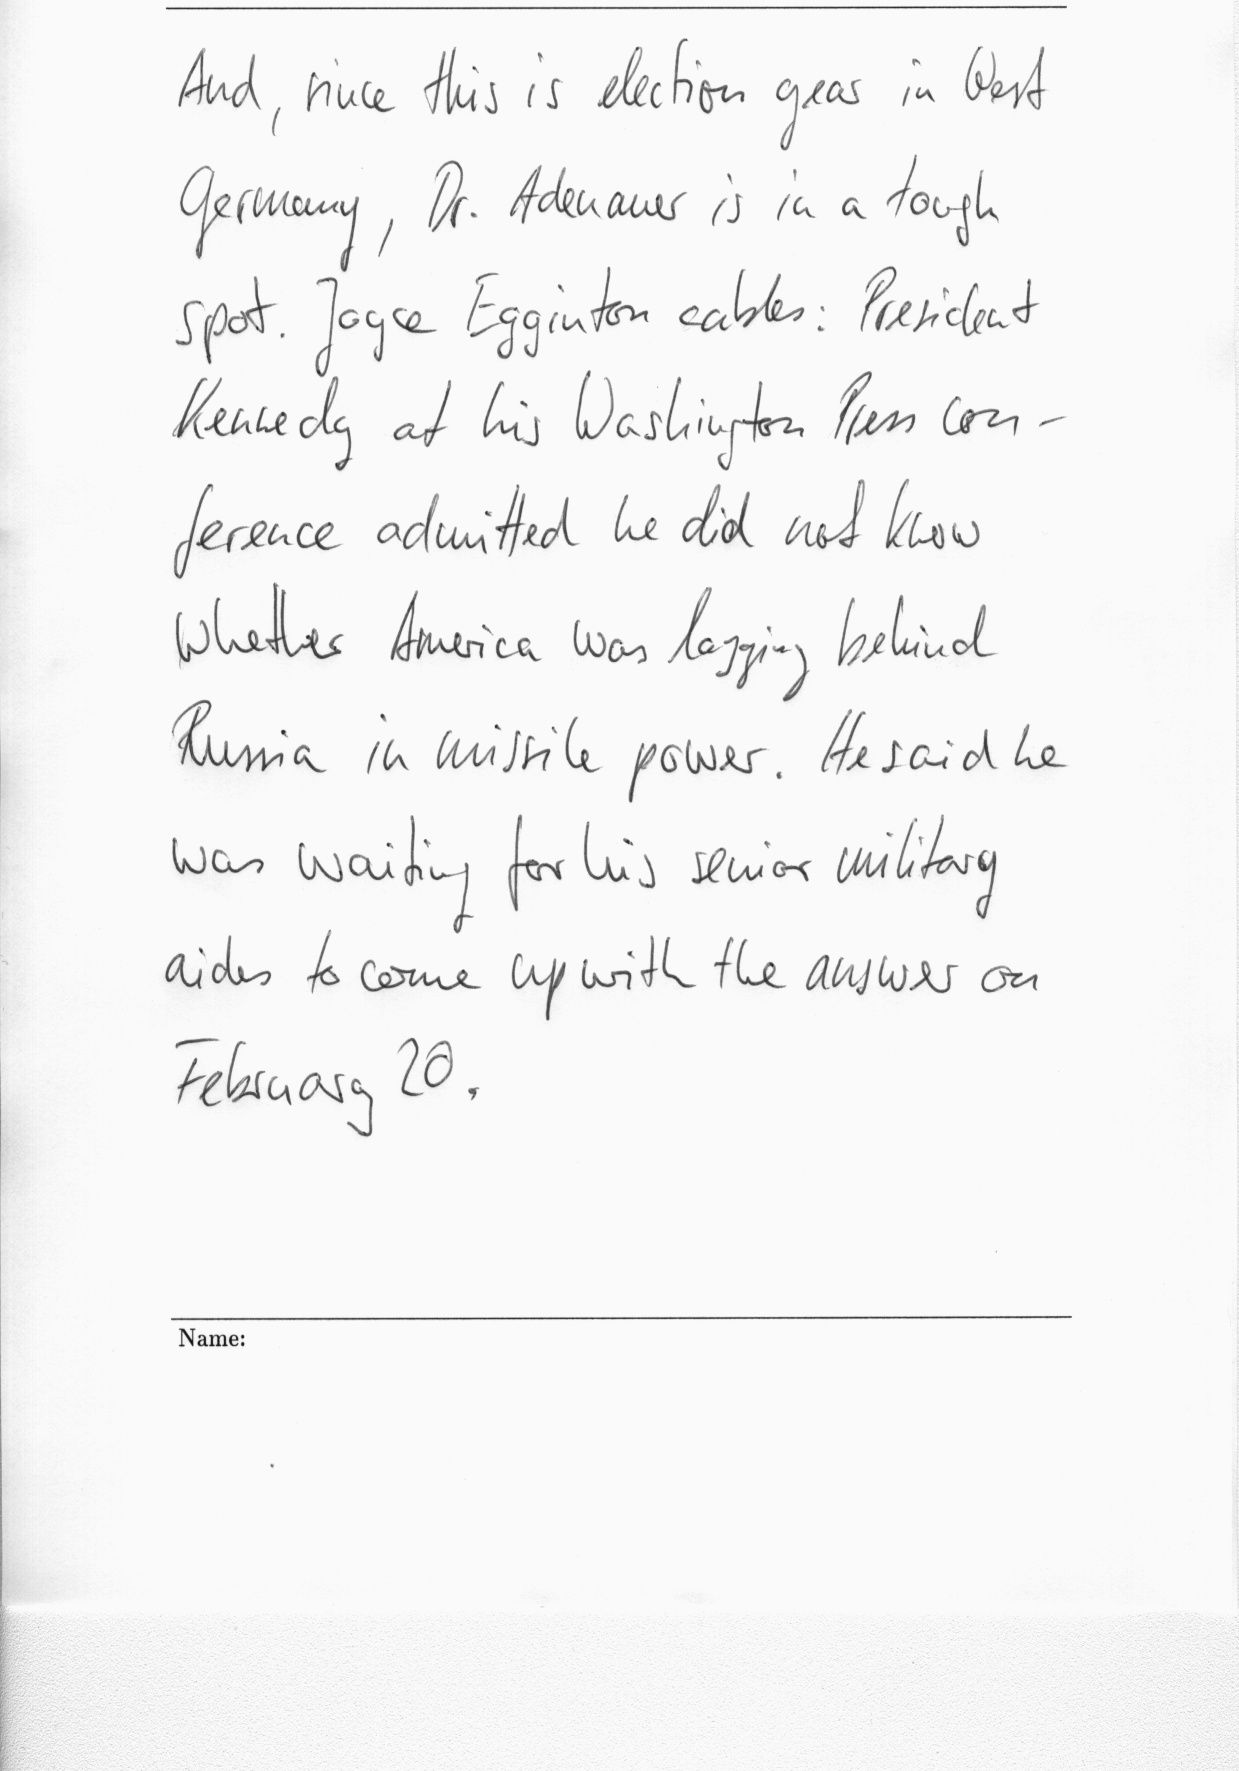 And, since this is election year in West
Germany, Dr. Adenauer is in a tough
spot. Joyce Egginton cables: President
Kennedy at his Washington Press con-
ference admitted he did not know
whether America was lagging behind
Russia in missile power. He said he
was waiting for his senior military
aides to come up with the answer on
February 20.
Name: